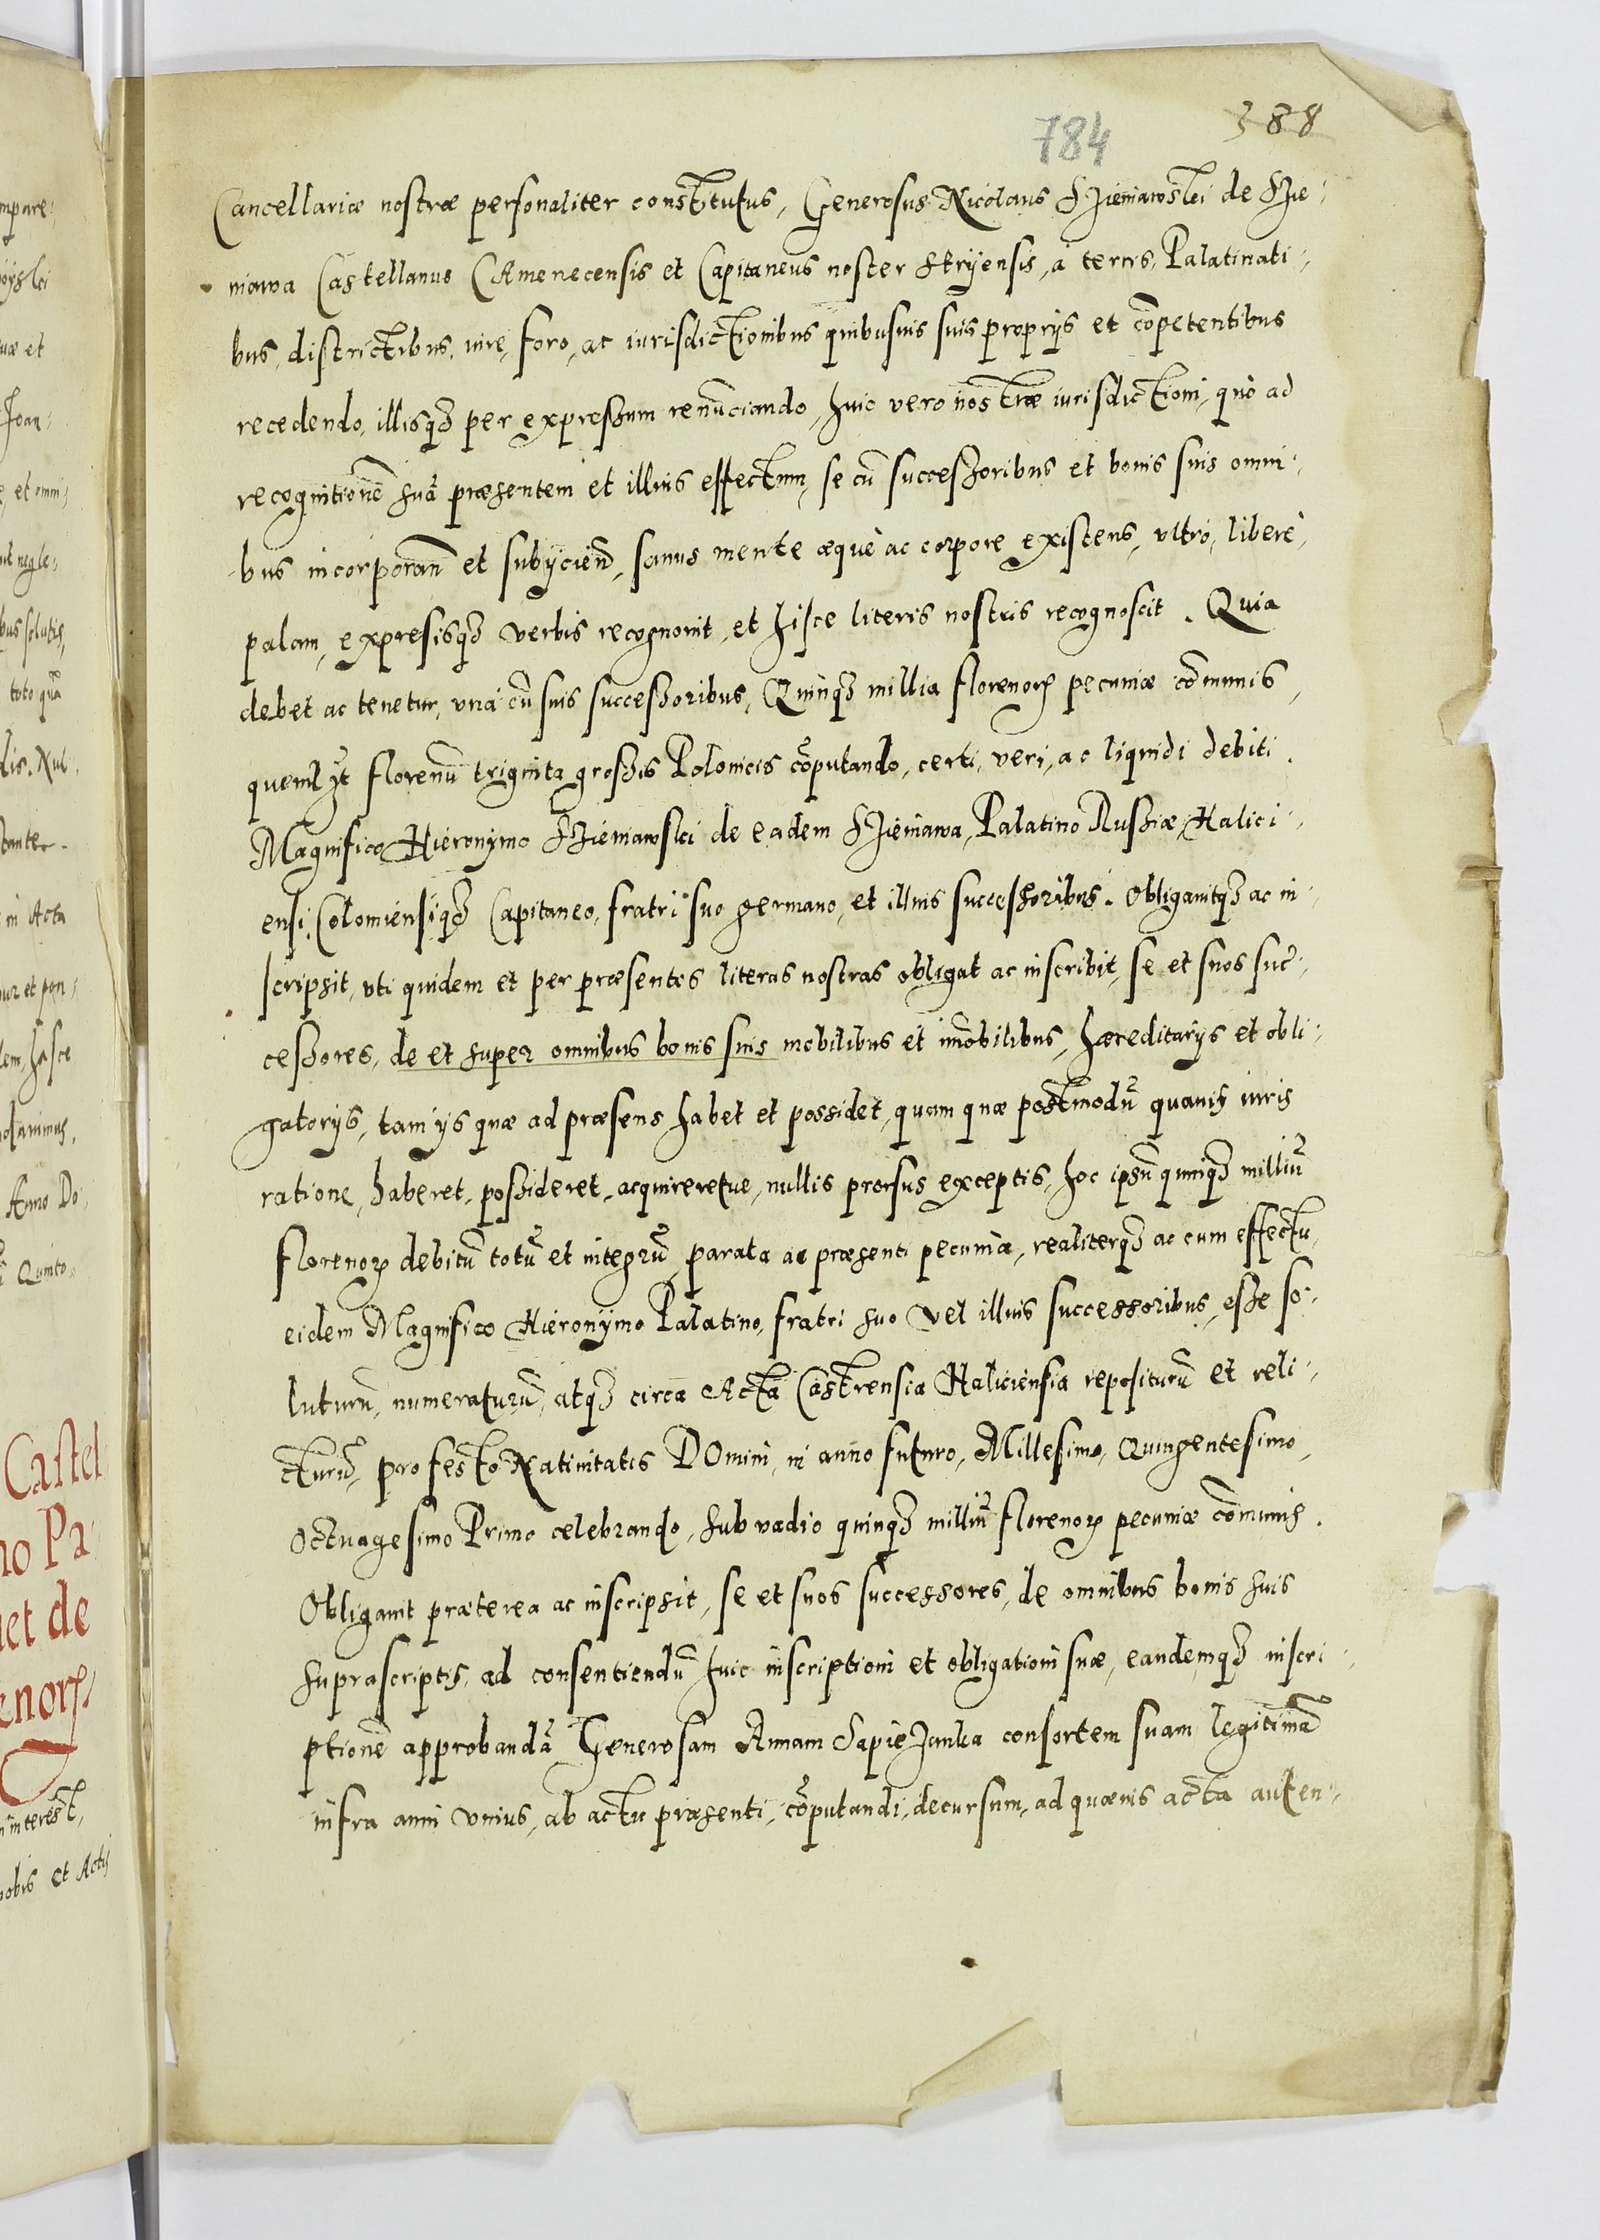 784
388
Cancellariæ nostræ personaliter constitutus, Generosus Nicolaus Sieniawski de Sie-
niawa Castellanus CAmenecensis et Capitaneus noster Stryensis, à terris, Palatinati-
bus, districtibus, iure, foro, ac iurisdictionibus quibusuis suis proprijs et cõpetentibus
recedendo, illisq₃ per expressum renunciando, huic vero nostræ iurisdictioni, quò ad
recognitionẽ suã præsentem et illius effectum, se cũ successoribus et bonis suis omni-
bus incorporañ et subijcieñ, sanus mente æquè ac corpore existens, vltro, liberè,
palam, expresisq₃ verbis recognouit, et hisce literis nostris recognoscit. Quia
debet ac tenetur, vnà cũ suis successoribus, Quinq₃ millia florenoꝝ pecuniæ cõmunis,
quemlꝫt florenũ triginta grossis Polonicis cõputando, certi, veri, ac liquidi debiti.
Magnifico Hieronymo Sieniawski de eadem Sieniawa, Palatino Russiæ, Halici-
ensi, Colomiensiq₃ Capitaneo, fratri suo germano, et illius successoribus. Obligauitq₃ ac in-
scripsit, vti quidem et per præsentes literas nostras obligat ac inscribit, se et suos suc-
cessores, de et super omnibus bonis suis mobilibus et im̃obilibus, hæreditarijs et obli-
gatorijs, tam ijs quæ ad præsens habet et possidet, quam quæ postmodũ quauis iuris
ratione, haberet, possideret, acquireretue, nullis prorsus exceptis, hoc ipsũ quinq₃ milliũ
florenoꝝ debitũ totũ et integrũ, parata ac præsenti pecunia, realiterq₃ ac cum effectu,
eidem Magnifico Hieronymo Palatino, fratri suo vel illius successoribus, esse so-
luturũ, numeraturũ, atq₃ circa Acta Castrensia Haliciensia repositurũ et reli-
cturũ, pro festo Natiuitatis DOmini, in anno futuro, Millesimo, Quingentesimo,
Octuagesimo Primo celebrando, sub vadio quinq₃ milliũ florenoꝝ pecuniæ cõmunis.
Obligauit præterea ac inscripsit, se et suos successores, de omnibus bonis suis
suprascriptis, ad consentiendũ huic inscriptioni et obligationi suæ, eandemq₃ inscri-
ptionẽ approbandã Generosam Annam Sapiezanka consortem suam legitimã
infra anni vnius, ab actu præsenti, cõputandi, decursum, ad quæuis acta auten-